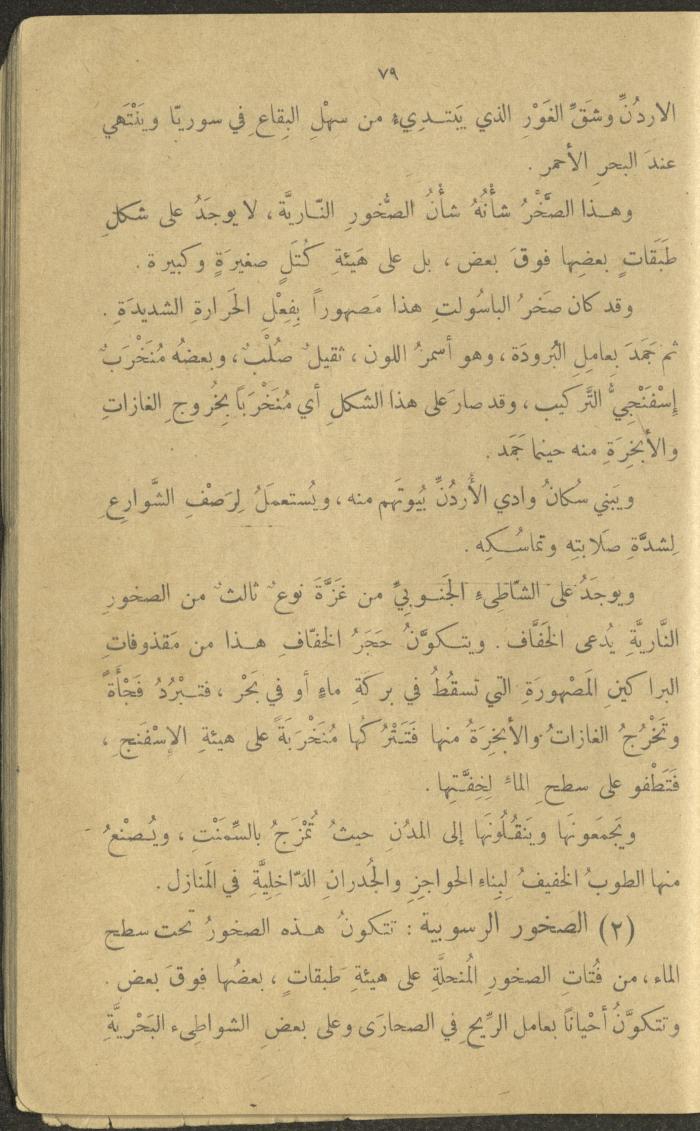 ٧٩
الاردُنِّ وشَقِّ الغَوْرِ الذي يَبتـدِيءُ من سهْلِ البِقاعِ في سوريّا ويَنْتَهي
عندَ البحرِ الأحمر .
وهـذا الصَّخْرُ شأْنُهُ شأْنُ الصُّخورِ النّاريَّة ، لا يوجَدُ على شكلِ
طَبَقَاتٍ بعضِها فوقَ بعض ، بل على هَيئةِ كُتَلٍ صغيرَةٍ وكبيرة .
وقد كان صَخرُ الباسُولتِ هذا مَصهوراً بِفِعْلِ الحَرارةِ الشديدَةِ .
ثم جَمَدَ بِعاملِ البُرودَة ، وهو أسمرُ اللون ، ثقيلٌ صُلْبٌ ، وبعضهُ مُنَخْرَبٌ
إسْفَنْجِيُّ التَّركيب ، وقد صارَ على هذا الشكلِ أي مُنَخْرَباً بِخُروجِ الغازاتِ
والأَبخِرَةِ منه حينما جَمَد .
ويَبني سُكانُ وادي الأُردُنِّ بُيوتَهم منه ، ويُستعمَلُ لِرَصْفِ الشَّوارِعِ
لِشدَّةِ صَلابتِه وتماسُـكِه .
ويوجَدُ على الشّاطِىءِ الجَنـوبيِّ من غَزَّةَ نوعٌ ثالثٌ من الصخورِ
النَّاريَّةِ يُدعى الخَفَّاف . ويتـكوَّنُ حَجَرُ الخفّافِ هـذا من مَقذوفاتِ
البراكينِ المَصْهورَةِ التي تَسقُطُ في بركَةِ ماءٍ أو في بَحْر ، فتـبْرُدُ فَجْأَةً
وتَخْرُجُ الغازاتُ والأبخِرَةُ منها فَتَتْرُكُها مُنَخْرَبَةً على هيئةِ الإسْفَنجِ ،
فَتَطْفو على سطحِ الماءِ لِخِفَّتِها .
ويَجمَعونَها ويَنقُـلُونَها إلى المدُنِ حيثُ تُمْزَجُ بالسِّمَنْتِ ، ويُـصْنعُ
منها الطوبُ الخفيفُ لِبِناءِ الحواجِزِ والجُدرانِ الدّاخِليَّةِ في المَنازل .
(٢) الصخور الرسوبية : تتكونُ هـذه الصخورُ تحت سطحِ
الماء ، من فُتاتِ الصخورِ المُنحلَّةِ على هيئةِ طبقاتٍ ، بعضُها فوقَ بعض .
وتتكوَّنُ أحْياناً بعاملِ الرِّيحِ في الصحارَى وعلى بعضِ الشواطِىءِ البَحْريَّةِ